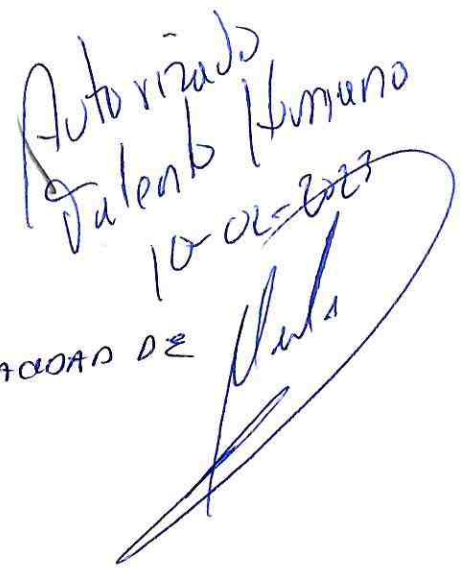 Autorizado
Talento Humano
10-02-2023
ACIDAD DE